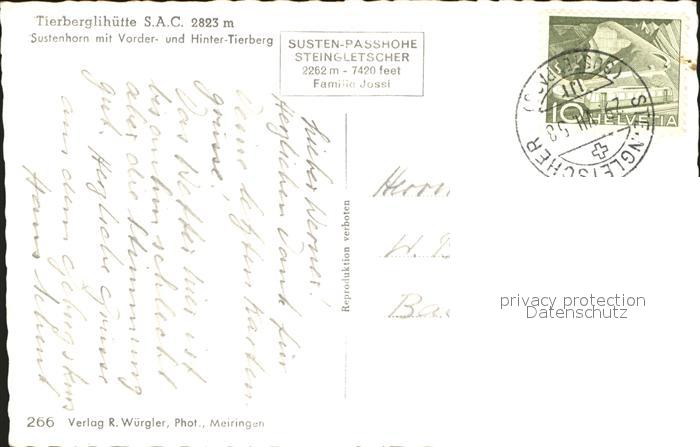 Tierberglihütte S.A.C. 2823 m
Sustenhorn mit Vorder- und Hinter-Tierberg
SUSTEN-PASSHÖHE
STEINGLETSCHER
2262 m - 7420 feet
Familie Jossi
10 HELVETIA
STEINGLETSCHER
(SUSTENPASS)
Lieber Werner!
Herzlichen Dank für
Deine letzten Karten
grüsse.
Das Wetter hier ist
bis anhin schlecht
aber die Stimmung
gut. Herzliche Grüsse
aus dem Gebirgskurs
Hans
Reproduktion verboten
Herrn
W.
privacy protection
Datenschutz
266 Verlag R. Würgler, Phot., Meiringen